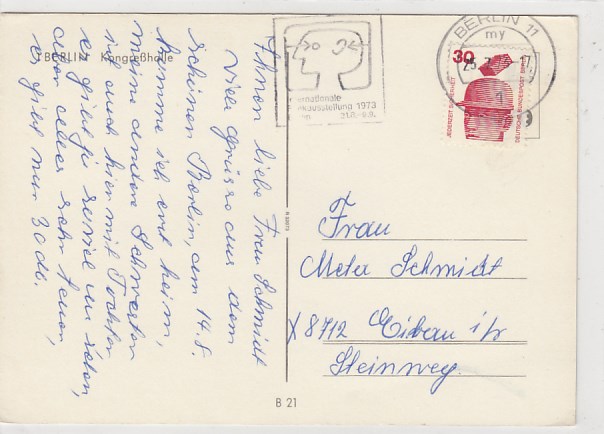 BERLIN Kongreßhalle
Ihnen liebe Frau Schmidt
viele Grüsse aus dem
schönen Berlin, am 14.8.
komme ich erst heim,
meine andere Schwester
ist auch hier mit Tochter
es gibt ja soviel zu sehen,
aber alles sehr teuer,
es gibt nur 30 dl.
BERLIN 11
my
internationale
Funkausstellung 1973
31.8.-9.9.
30
JEDERZEIT SICHERHEIT
DEUTSCHE BUNDESPOST BERLIN
Frau
Meta Schmidt
X 8712 Eibau i/S
Steinweg
B 21